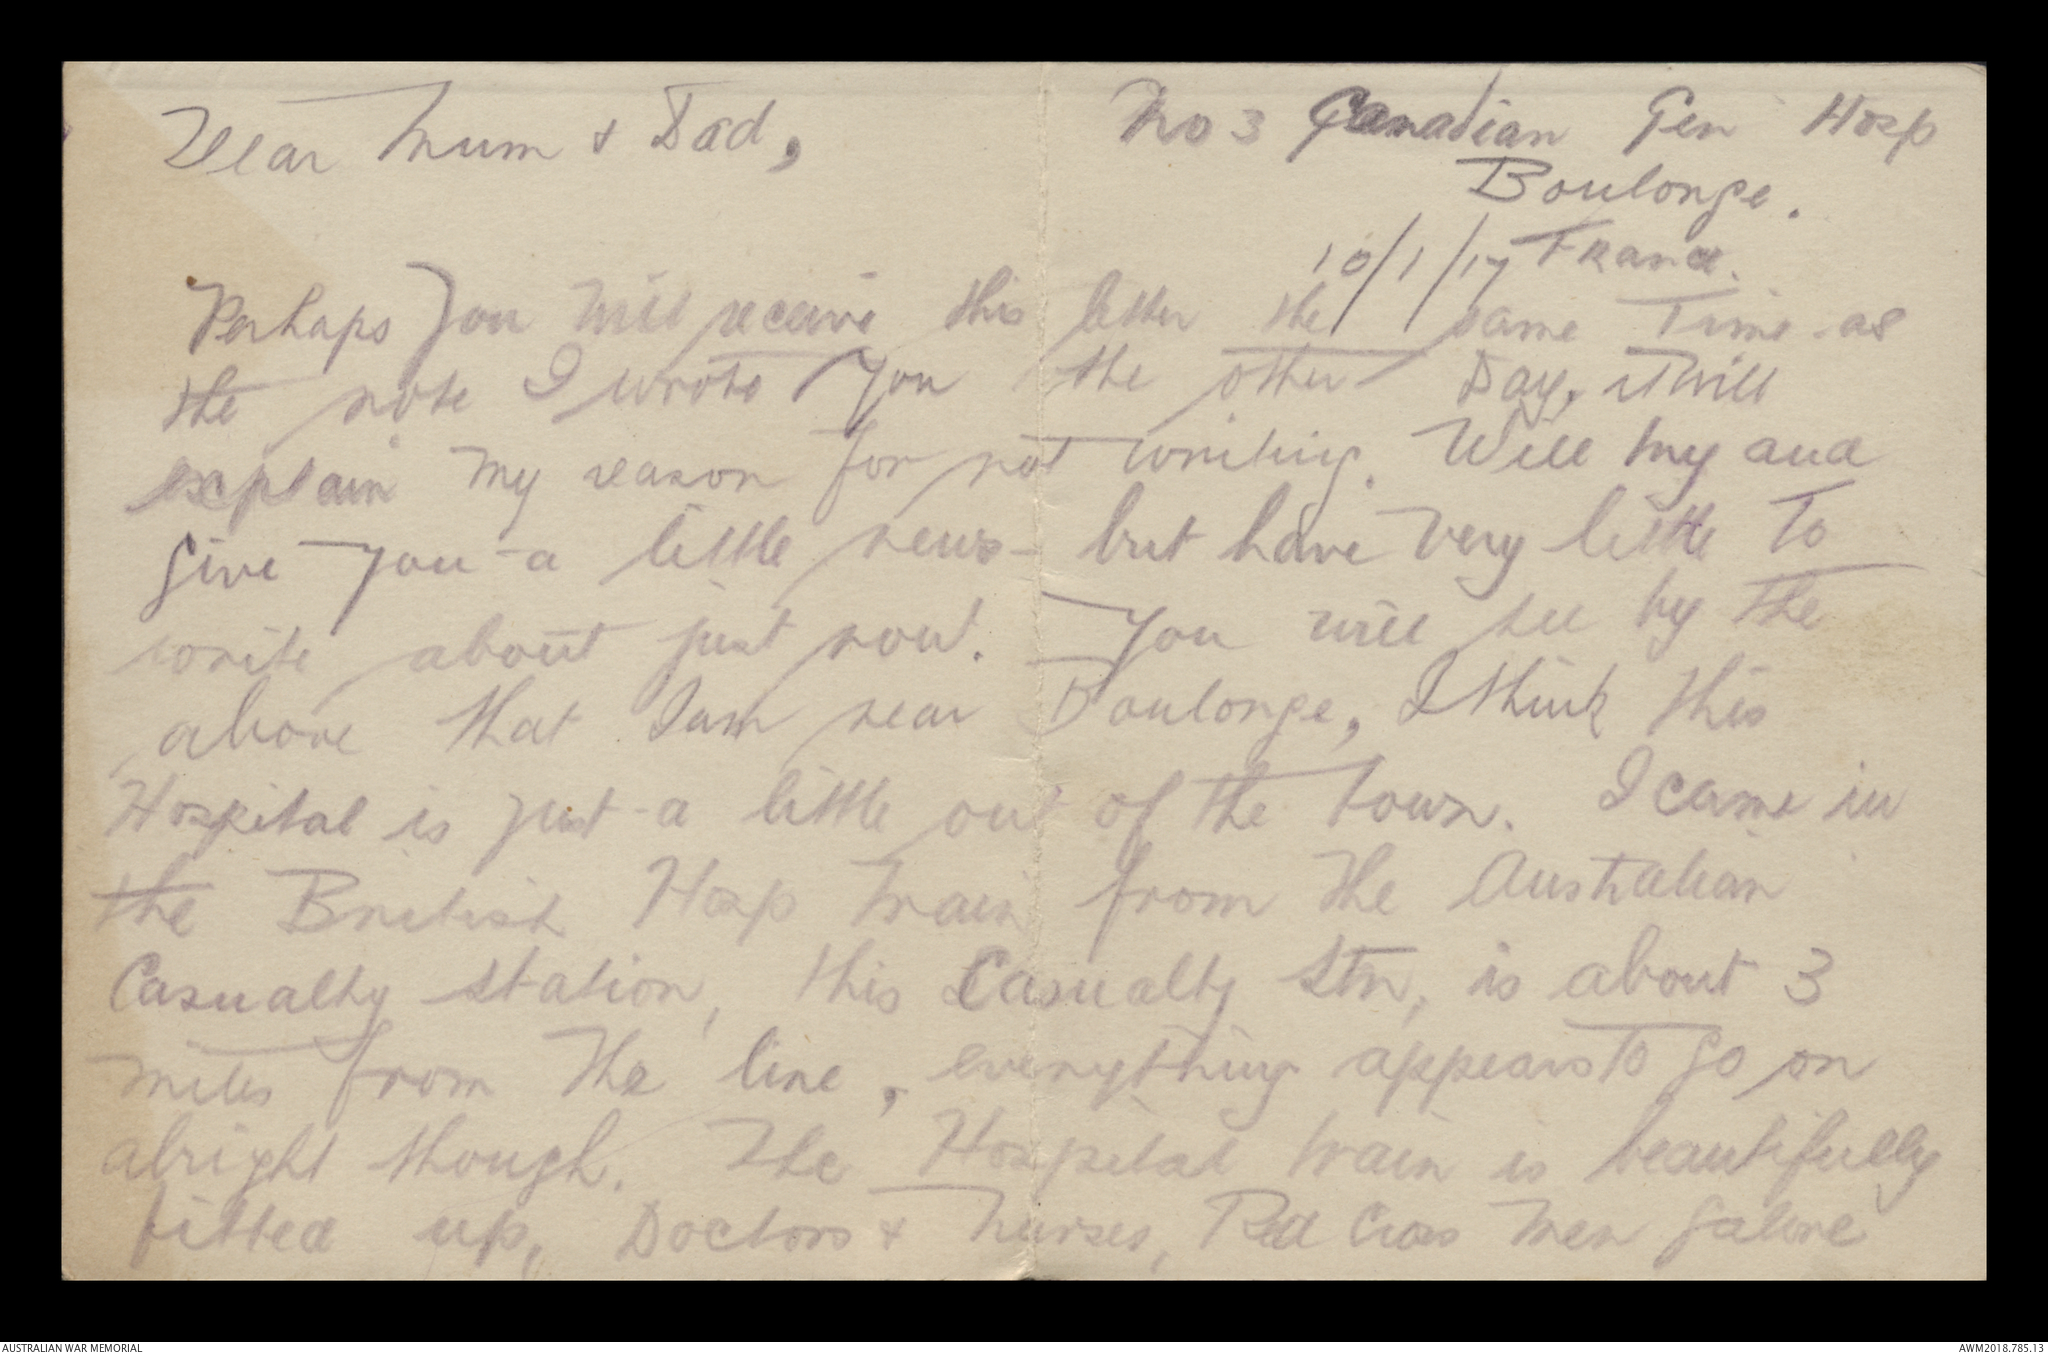 Dear Mum & Dad,
No 3 Canadian Gen Hosp
Boulonge.
10/1/17 France.
Perhaps you will receive this letter the same Time as
the note I wrote you the other Day, it will
explain my reason for not writing. Will try and
give you a little news but have very little To
write about just now. You will see by The
above that I am near Boulonge, I think this
Hospital is just a little out of the town. I came in
the British Hosp train from the Australian
Casualty station, this Casualty Stn, is about 3
miles from The line, everything appears to go on
alright though. The Hospital train is beautifully
fitted up, Doctors & Nurses, Red Cross men galore
AUSTRALIAN WAR MEMORIAL
AWM2018.785.13